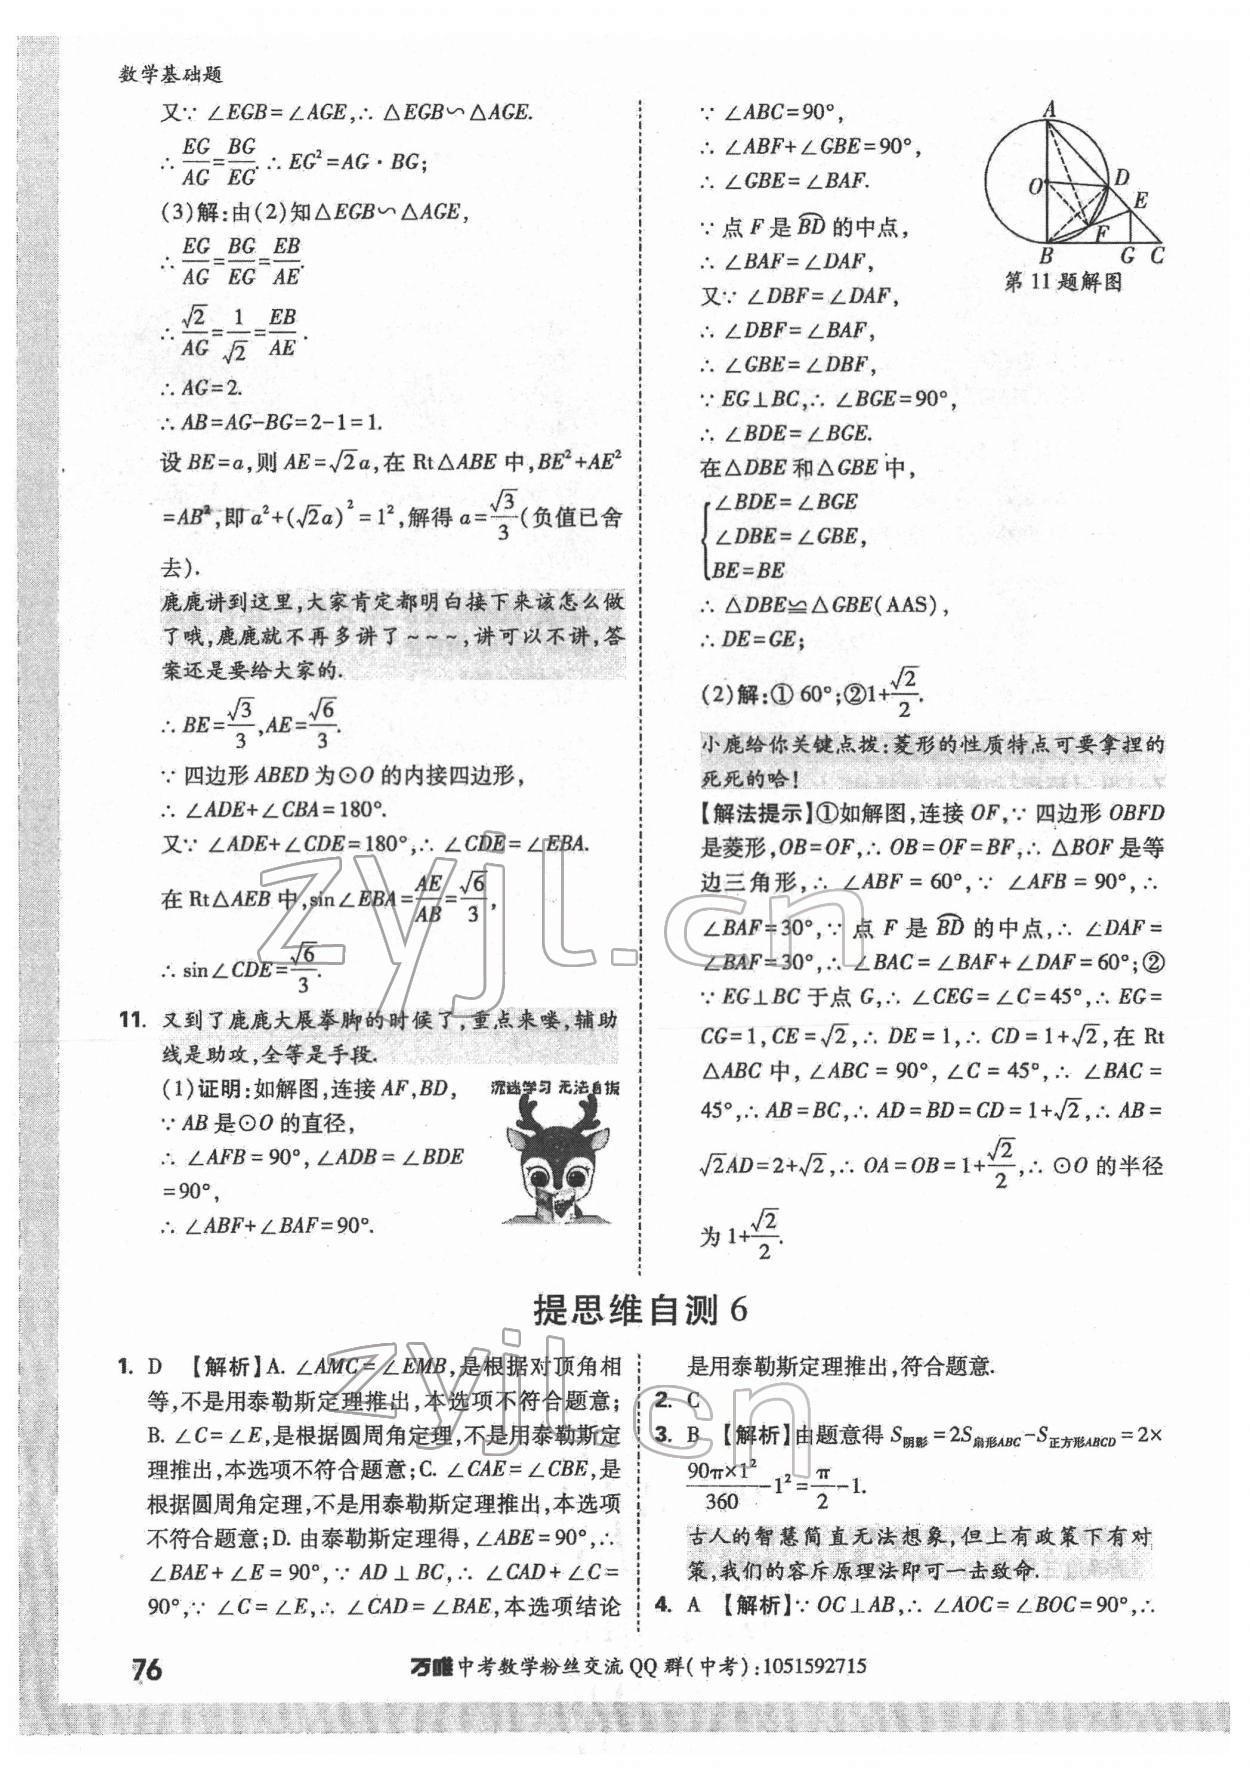 数学基础题
又∵ ∠EGB=∠AGE,∴ △EGB∽△AGE.
∴ EG/AG=BG/EG.∴ EG²=AG·BG;
(3)解:由(2)知△EGB∽△AGE,
∴ EG/AG=BG/EG=EB/AE.
∴ √2/AG=1/√2=EB/AE.
∴ AG=2.
∴ AB=AG-BG=2-1=1.
设 BE=a,则 AE=√2a,在 Rt△ABE 中,BE²+AE²
=AB²,即 a²+(√2a)²=1²,解得 a=√3/3(负值已舍
去).
鹿鹿讲到这里,大家肯定都明白接下来该怎么做
了哦,鹿鹿就不再多讲了~~~,讲可以不讲,答
案还是要给大家的.
∴ BE=√3/3,AE=√6/3.
∵ 四边形 ABED 为⊙O 的内接四边形,
∴ ∠ADE+∠CBA=180°.
又∵ ∠ADE+∠CDE=180°,∴ ∠CDE=∠EBA.
在 Rt△AEB 中,sin∠EBA=AE/AB=√6/3,
∴ sin∠CDE=√6/3.
11. 又到了鹿鹿大展拳脚的时候了,重点来喽,辅助
线是助攻,全等是手段.
(1)证明:如解图,连接 AF,BD,
沉迷学习 无法自拔
∵ AB 是⊙O 的直径,
∴ ∠AFB=90°,∠ADB=∠BDE
=90°,
∴ ∠ABF+∠BAF=90°.
∵ ∠ABC=90°,
∴ ∠ABF+∠GBE=90°,
∴ ∠GBE=∠BAF.
∵ 点 F 是 B͡D 的中点,
∴ ∠BAF=∠DAF,
又∵ ∠DBF=∠DAF,
∴ ∠DBF=∠BAF,
∴ ∠GBE=∠DBF,
∵ EG⊥BC,∴ ∠BGE=90°,
∴ ∠BDE=∠BGE.
在△DBE 和△GBE 中,
∠BDE=∠BGE
∠DBE=∠GBE,
BE=BE
∴ △DBE≌△GBE(AAS),
∴ DE=GE;
A
O
D
E
F
B
G
C
第 11 题解图
(2)解:①60°;②1+√2/2.
小鹿给你关键点拨:菱形的性质特点可要拿捏的
死死的哈!
【解法提示】①如解图,连接 OF,∵ 四边形 OBFD
是菱形,OB=OF,∴ OB=OF=BF,∴ △BOF 是等
边三角形,∴ ∠ABF=60°,∵ ∠AFB=90°,∴
∠BAF=30°,∵ 点 F 是 B͡D 的中点,∴ ∠DAF=
∠BAF=30°,∴ ∠BAC=∠BAF+∠DAF=60°;②
∵ EG⊥BC 于点 G,∴ ∠CEG=∠C=45°,∴ EG=
CG=1,CE=√2,∴ DE=1,∴ CD=1+√2,在 Rt
△ABC 中,∠ABC=90°,∠C=45°,∴ ∠BAC=
45°,∴ AB=BC,∴ AD=BD=CD=1+√2,∴ AB=
√2AD=2+√2,∴ OA=OB=1+√2/2,∴ ⊙O 的半径
为 1+√2/2.
提思维自测 6
1. D 【解析】A. ∠AMC=∠EMB,是根据对顶角相
等,不是用泰勒斯定理推出,本选项不符合题意;
B. ∠C=∠E,是根据圆周角定理,不是用泰勒斯定
理推出,本选项不符合题意;C. ∠CAE=∠CBE,是
根据圆周角定理,不是用泰勒斯定理推出,本选项
不符合题意;D. 由泰勒斯定理得,∠ABE=90°,∴
∠BAE+∠E=90°,∵ AD⊥BC,∴ ∠CAD+∠C=
90°,∵ ∠C=∠E,∴ ∠CAD=∠BAE,本选项结论
是用泰勒斯定理推出,符合题意.
2. C
3. B 【解析】由题意得 S阴影=2S扇形ABC-S正方形ABCD=2×
90π×1²/360-1²=π/2-1.
古人的智慧简直无法想象,但上有政策下有对
策,我们的容斥原理法即可一击致命.
4. A 【解析】∵ OC⊥AB,∴ ∠AOC=∠BOC=90°,∴
76
万唯中考数学粉丝交流 QQ 群(中考):1051592715
zyjl.cn
zyjl.cn